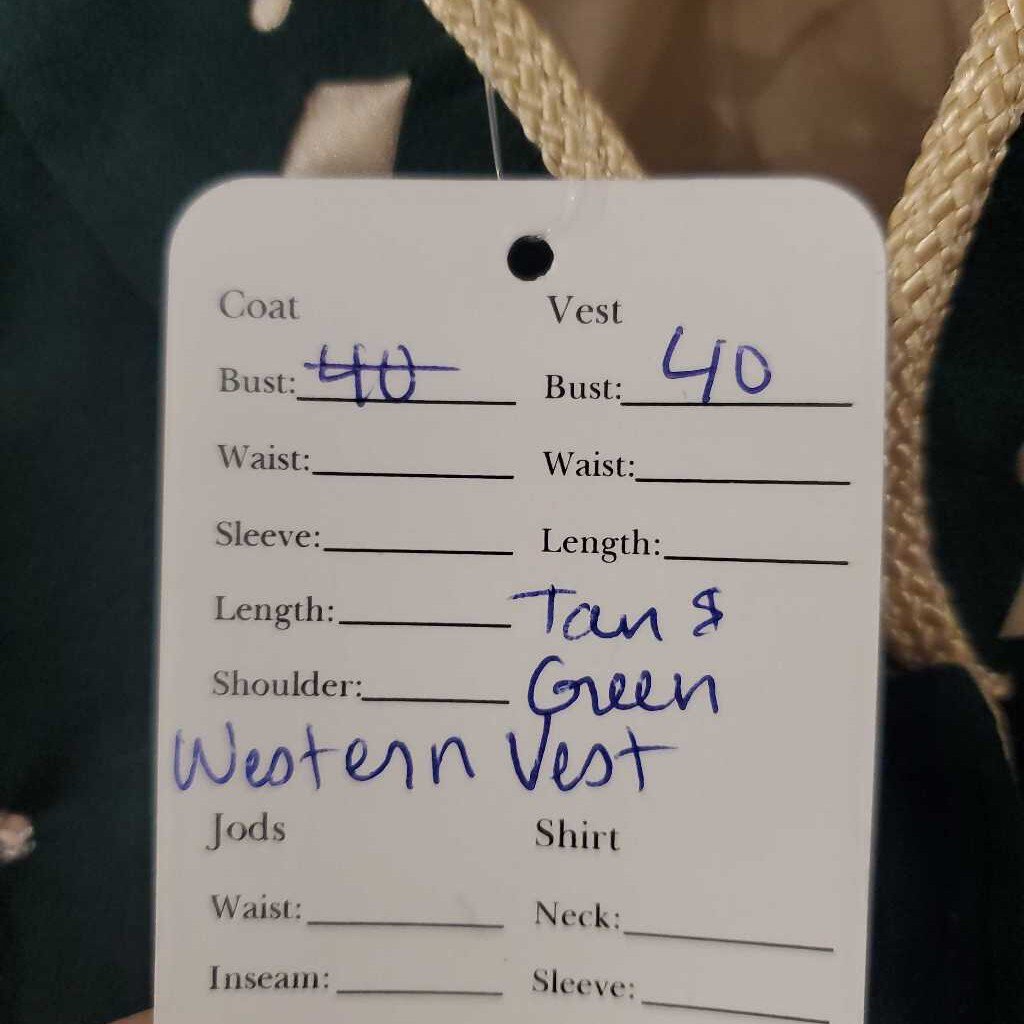 Coat Vest
Bust: 40 Bust: 40
Waist: Waist:
Sleeve: Length:
Length: Tan &
Shoulder: Green
Western Vest
Jods Shirt
Waist: Neck:
Inseam: Sleeve: